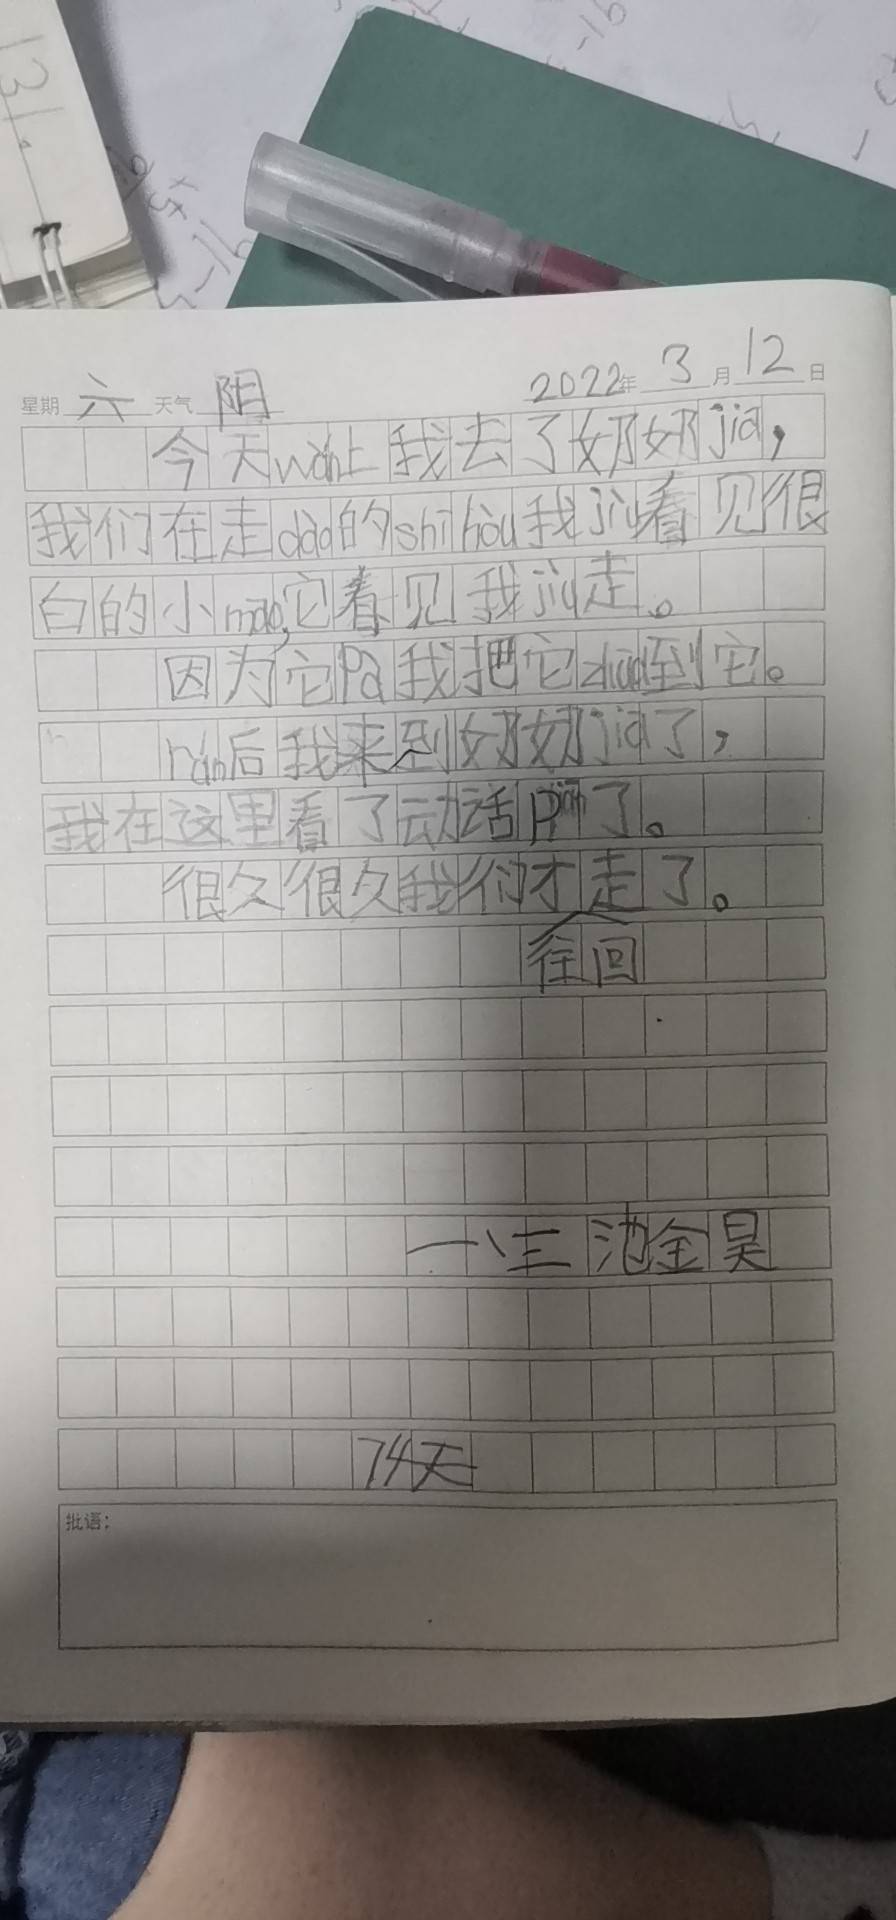 131.
星期 六 天气 阴 2022年 3 月 12 日
今天wǎn上我去了奶奶jiā，
我们在走dào的shí hòu我jiù看见很
白的小māo，它看见我jiù走。
因为它Pà我把它zhuā到它。
rán后我来到奶奶jiā了，
我在这里看了动话piàn了。
很久很久我们才走了。
往回
一、三 池金昊
74天
批语：